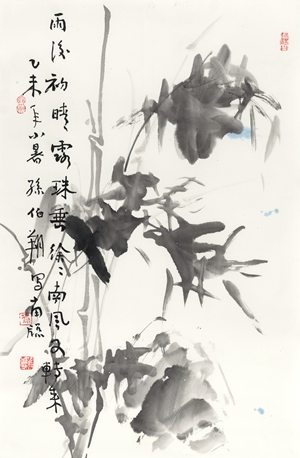 雨後初晴露珠垂徐徐南風又轉來
乙未年小暑孫伯翔寫